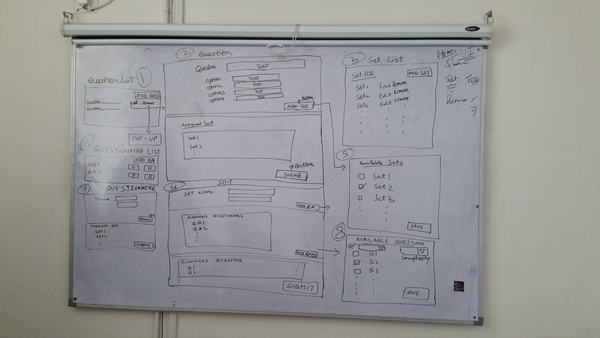 Question List 1
ADD QUES
Edit Remove
POP-UP
QUESTIONAIRE LIST
ADD QA
QA1 E R
QA2 E R
7 QUESTIONAIRE
SET 1
SET 2
2 Question
Question Text
option1 Text
option2 Text
option3 Text
option4 Text
Button
Assign Set
Assigned Set
Set 1
Set 2
Button
Submit
SET
SET NAME
ASSIGNED QUESTIONAIRES
QA1
QA2
ASSIGNED QUESTIONS
Q1
Q2
SUBMIT
3 Set List
Set List
ADD SET
Set1 Edit Remove
Set2 Edit Remove
Set3 Edit Remove
5
Available Sets
Set 1
Set 2
Set 3
SAVE
8
AVAILABLE QUESTIONS
Complexity
Q1
Q2
Q3
SAVE
Set